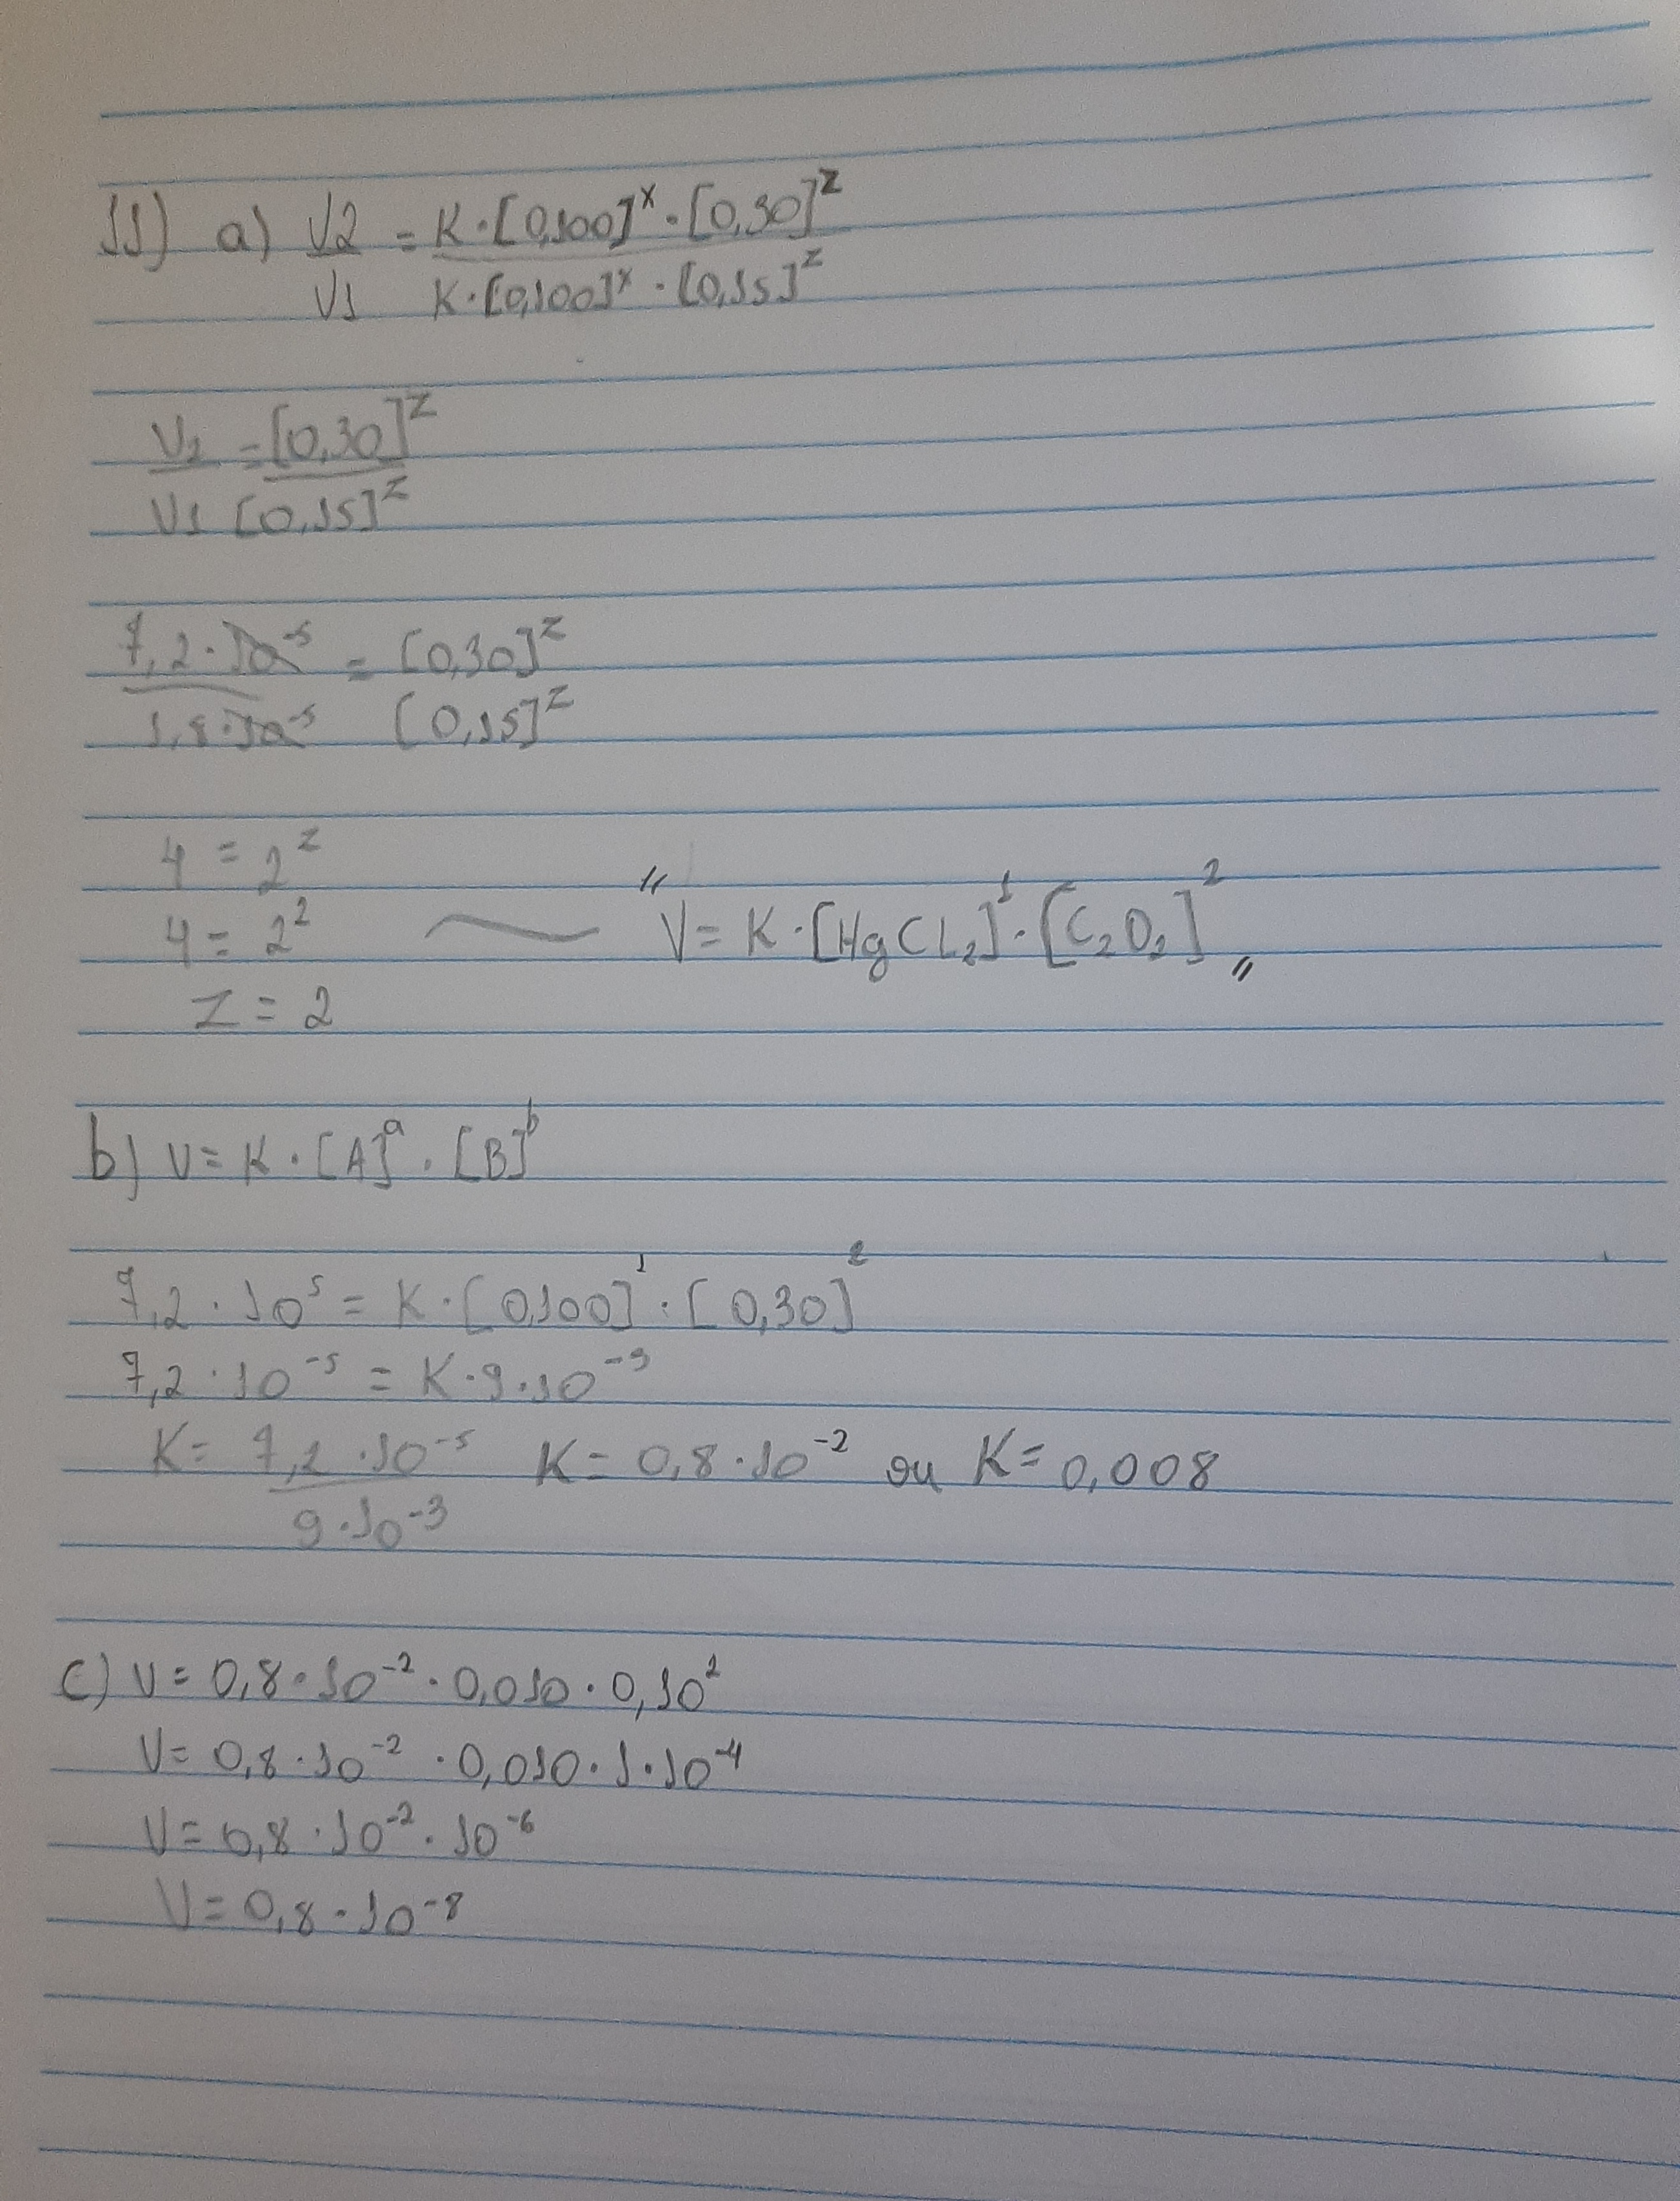 11) a) V2 = K·[0,100]ˣ·[0,30]ᶻ
V1 K·[0,100]ˣ·[0,15]ᶻ
V2 = [0,30]ᶻ
V1 [0,15]ᶻ
7,2·10⁻⁵ = [0,30]ᶻ
1,8·10⁻⁵ [0,15]ᶻ
4 = 2ᶻ
4 = 2² — " V = K·[HgCL₂]¹·[C₂O₂]² "
Z = 2
b) V = K·[A]ᵃ·[B]ᵇ
7,2·10⁵ = K·[0,100]¹·[0,30]²
7,2·10⁻⁵ = K·9·10⁻³
K = 7,2·10⁻⁵ K = 0,8·10⁻² ou K = 0,008
9·10⁻³
c) V = 0,8·10⁻²·0,010·0,10²
V = 0,8·10⁻²·0,010·1·10⁻⁴
V = 0,8·10⁻²·10⁻⁶
V = 0,8·10⁻⁸